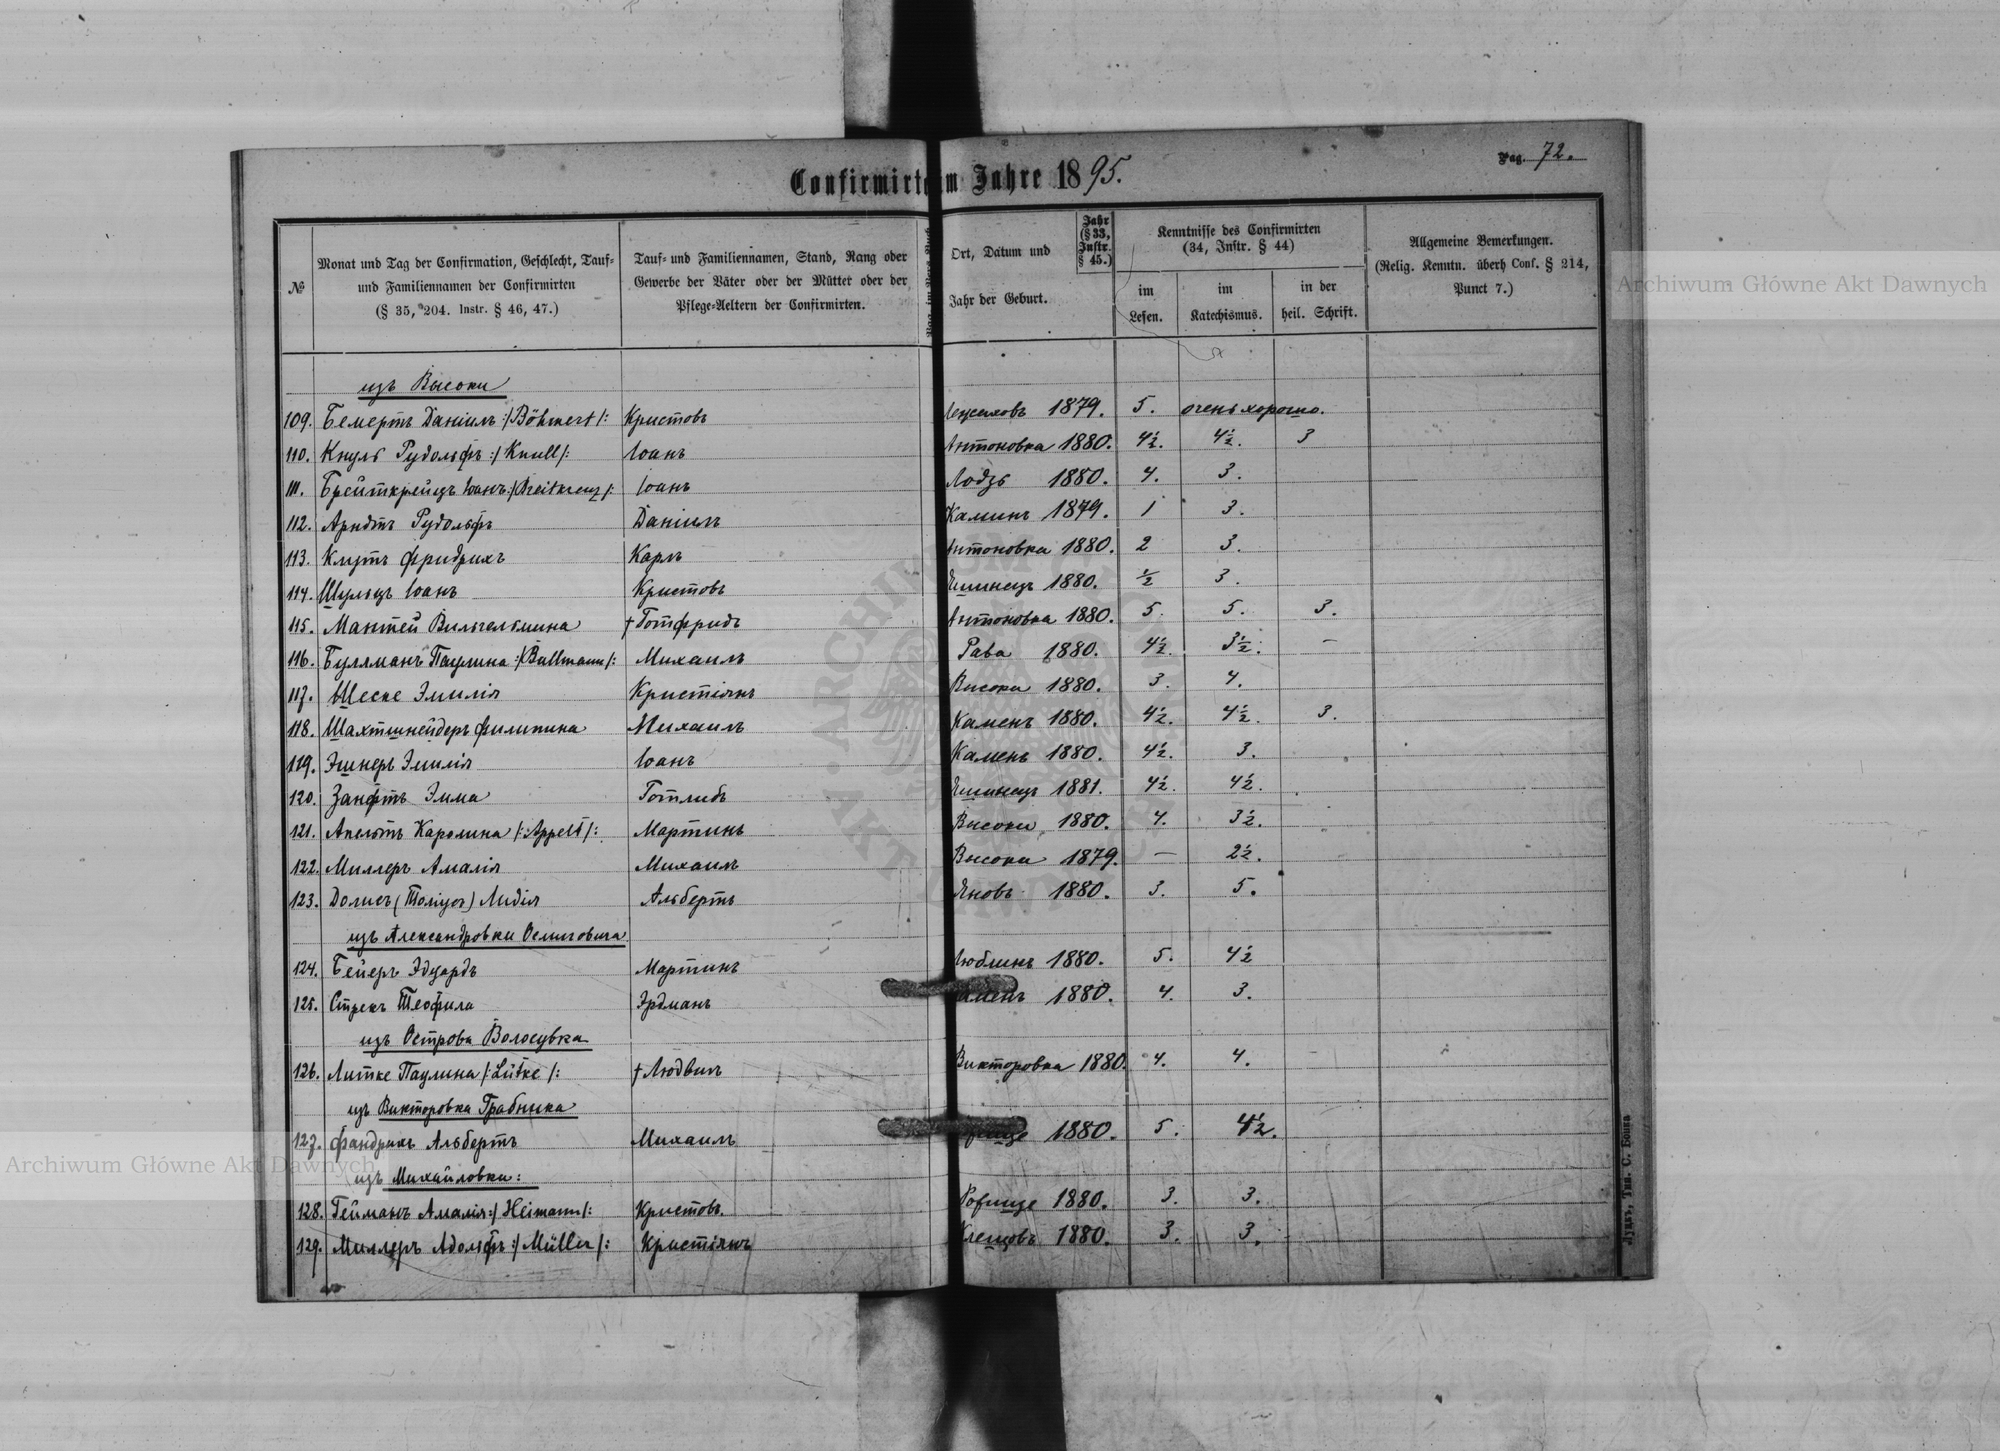 Pag. 72.
Confirmirte im Jahre 1895.
№
Monat und Tag der Confirmation, Geschlecht, Tauf-
und Familiennamen der Confirmirten
(§ 35, 204. Instr. § 46, 47.)
Tauf- und Familiennamen, Stand, Rang oder
Gewerbe der Väter oder der Mütter oder der
Pflege-Aeltern der Confirmirten.
Ort, Datum und
Jahr der Geburt.
Jahr
(§ 33,
Instr.
§ 45.)
Kenntnisse des Confirmirten
(34, Instr. § 44)
im
Lesen.
im
Katechismus.
in der
heil. Schrift.
Allgemeine Bemerkungen.
(Relig. Kenntn. überh Conf. § 214,
Punct 7.)
изъ Высоки
109. Бемертъ Данiилъ :/Böhmert/: Кристовъ 1879. 5. очень хорошо.
110. Кнуль Рудольфъ :/Knull/: Іоанъ Антоновка 1880. 4½. 4½. 3
111. Брейткрейцъ Іоанъ :/Breitkreuz/: Іоанъ Лодзь 1880. 4. 3.
112. Арндтъ Рудольфъ Данiилъ Каминъ 1879. 1 3.
113. Клутъ Фридрихъ Карлъ Антоновка 1880. 2 3.
114. Шульцъ Іоанъ Кристовъ 1880. ½ 3.
115. Мантей Вильгельмина † Готфридъ Антоновка 1880. 5. 5. 3.
116. Буллманъ Паулина :/Bullmann/: Михаилъ Рава 1880. 4½. 3½. –
117. Шеске Эмилiя Кристiянъ Высоки 1880. 3. 4.
118. Шахтшнейдеръ Филипина Михаилъ Каменъ 1880. 4½. 4½. 3.
119. Эшнеръ Эмилiя Іоанъ Камень 1880. 4½. 3.
120. Занфтъ Эмма Готлибъ 1881. 4½. 4½.
121. Апельтъ Каролина /:Appelt/: Мартинъ Высоки 1880. 4. 3½.
122. Миллеръ Амалiя Михаилъ Высоки 1879. – 2½.
123. Долисъ Лидiя Альбертъ Яновъ 1880. 3. 5.
изъ Александровки Осмиговича
124. Бейеръ Эдуардъ Мартинъ Люблинъ 1880. 5. 4½
125. Стрекъ Теофила Эрдманъ 1880. 4. 3.
изъ Острова Волосувка
126. Литке Паулина /:Lütke/: † Людвигъ Викторовка 1880. 4. 4.
изъ Викторовка Грабника
127. Фандрихъ Альбертъ Михаилъ 1880. 5. 4½.
изъ Михайловки:
128. Гейманъ Амалiя :/Heimann/: Кристовъ. Рожище 1880. 3. 3.
129. Миллеръ Адольфъ :/Müller/: Кристiянъ Клещовъ 1880. 3. 3.
Луцкъ, Тип. С. Бонка
Archiwum Główne Akt Dawnych
Archiwum Główne Akt Dawnych